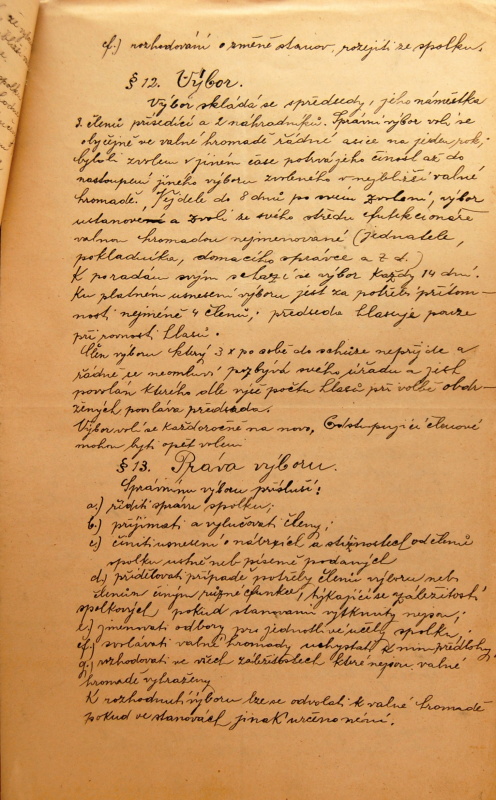 f.) rozhodování o změně stanov, rozejití ze spolku.
§ 12. Výbor.
Výbor skládá se z předsedy, jeho náměstka
3. členů přísedící a 2 náhradníků. Správní výbor volí se
obyčejně ve valné hromadě řádné a sice na jeden rok;
byl-li zvolen v jiném čase potrvá jeho činost až do
nastoupení jiného výboru zvoleného v nejbližší valné
hromadě. Nejdéle do 8 dnů po svém zvolení, výbor
ustanoven a zvolí ze svého středu funkcionáře
valnou hromadou nejmenované (jednatele,
pokladníka, domácího správce a t. d.)
K poradám svým schází se výbor každý 14 dní.
Ku platném usnesení výboru jest za potřebí přítom-
nosti nejméně 4 členů; předseda hlasuje pouze
při rovnosti hlasů.
Člen výboru který 3 x po sobě do schůze nepřijde a
řádně se neomluví pozbývá svého úřadu a jest
povolán kterého dle výše počtu hlasů při volbě obdr-
žených povolává předseda.
Výbor volí se každoročně na novo, Odstupující členové
mohou býti opět voleni
§ 13. Práva výboru.
Správnímu výboru přísluší:
a.) říditi správu spolku;
b.) přijímati a vylučovati členy;
c.) činiti usnesení o návrzích a stížnostech od členů
spolku ustně neb písemě podaných
d.) přidělovati případě potřeby členů výboru neb
členům jiným různé funkce, týkající se záležitostí
spolkových pokud stanovami vytknuty nejsou;
e.) jmenovati odbory pro jednotlivé účely spolku;
f.) svolávati valné hromady uchystati k nim předlohy.
g.) rozhodovati ve všech záležitostech které nejsou valné
hromadě vyhraženy
K rozhodnutí výboru lze se odvolati k valné hromadě
pokud ve stanovách jinak určeno není.